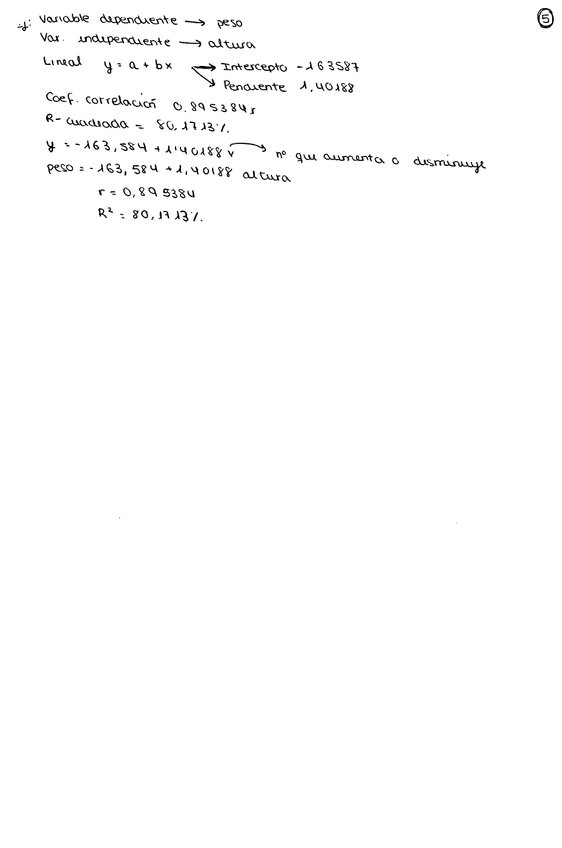 ⑤
Variable dependiente → peso
Var. independiente → altura
Lineal y = a + bx → Intercepto -163587
→ Pendiente 1,40188
Coef. correlación 0,895384
R-cuadrada = 80,1713%.
y = -163,584 + 1'40188 → nº que aumenta o disminuye
peso = -163,584 + 1,40188 altura
r = 0,895384
R² = 80,1713%.